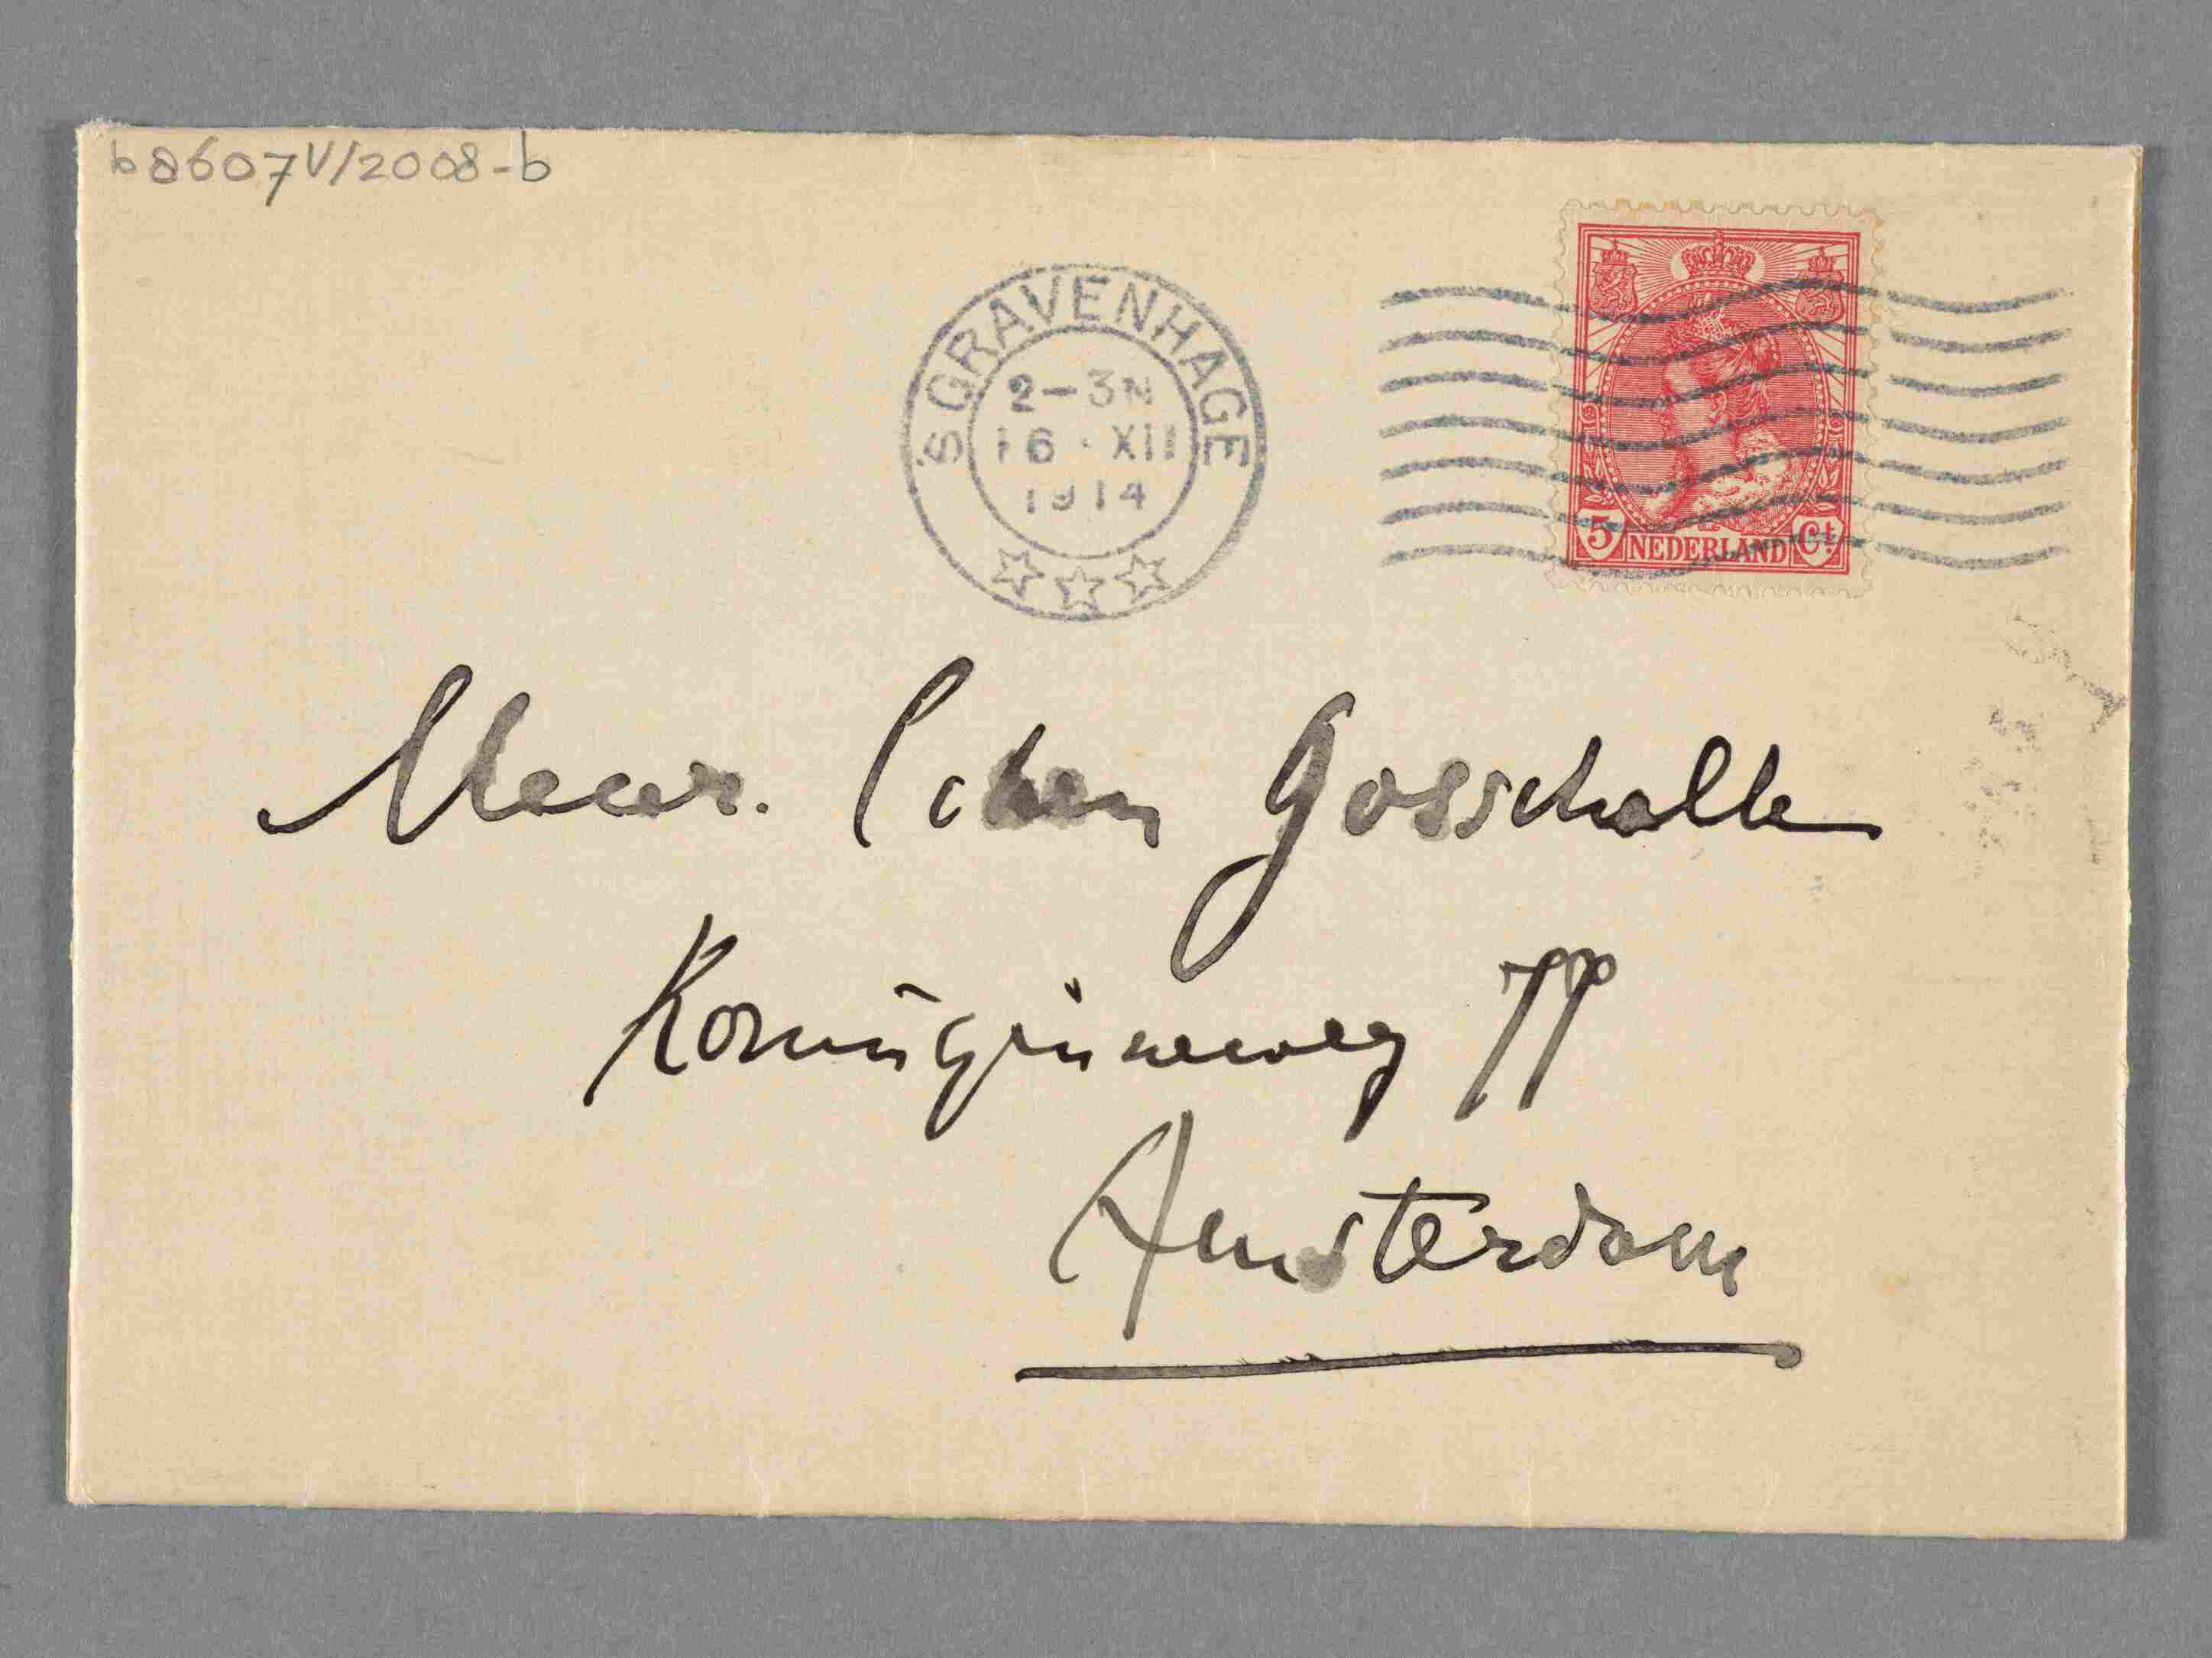 b8607V/2008-b
'SGRAVENHAGE
2-3N
16·XII
1914
5 NEDERLAND Ct
Mevr. Cohen Gosschalk
Koninginneweg 77
Amsterdam